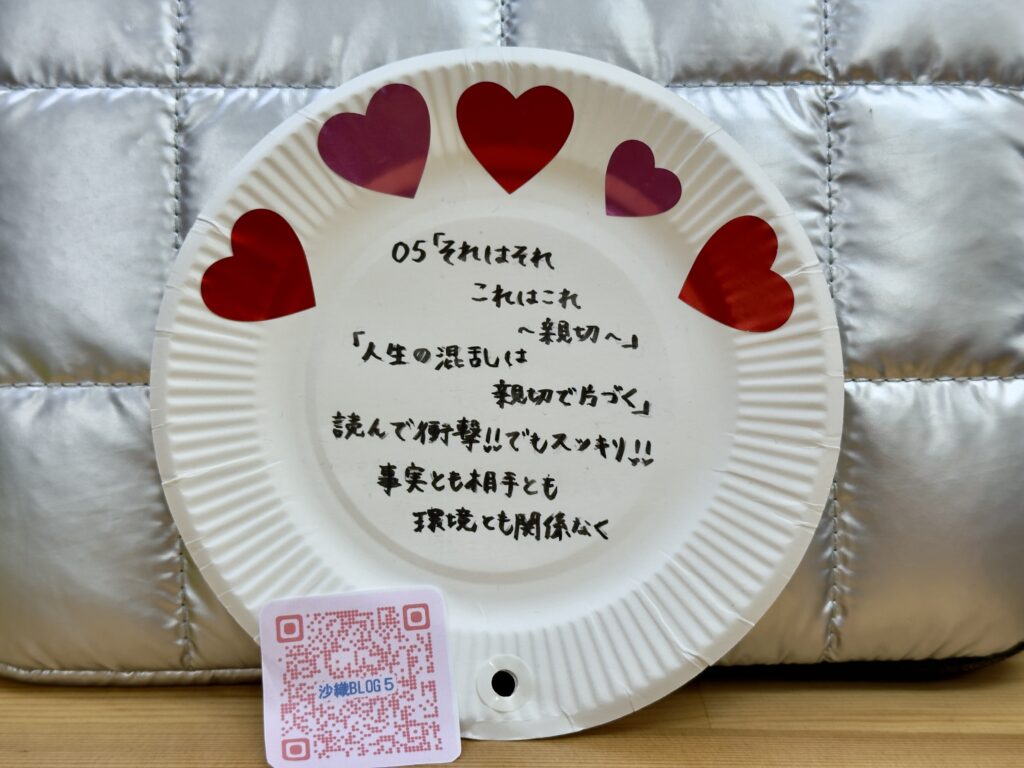 05「それはそれ
これはこれ
～親切～」
「人生の混乱は
親切で片づく」
読んで衝撃!!でもスッキリ!!
事実とも相手とも
環境とも関係なく
沙織BLOG5